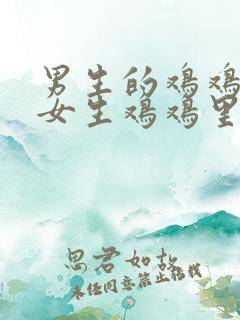 男生的鸡鸡
女生鸡鸡里
思君如故
未经同意禁止搭我